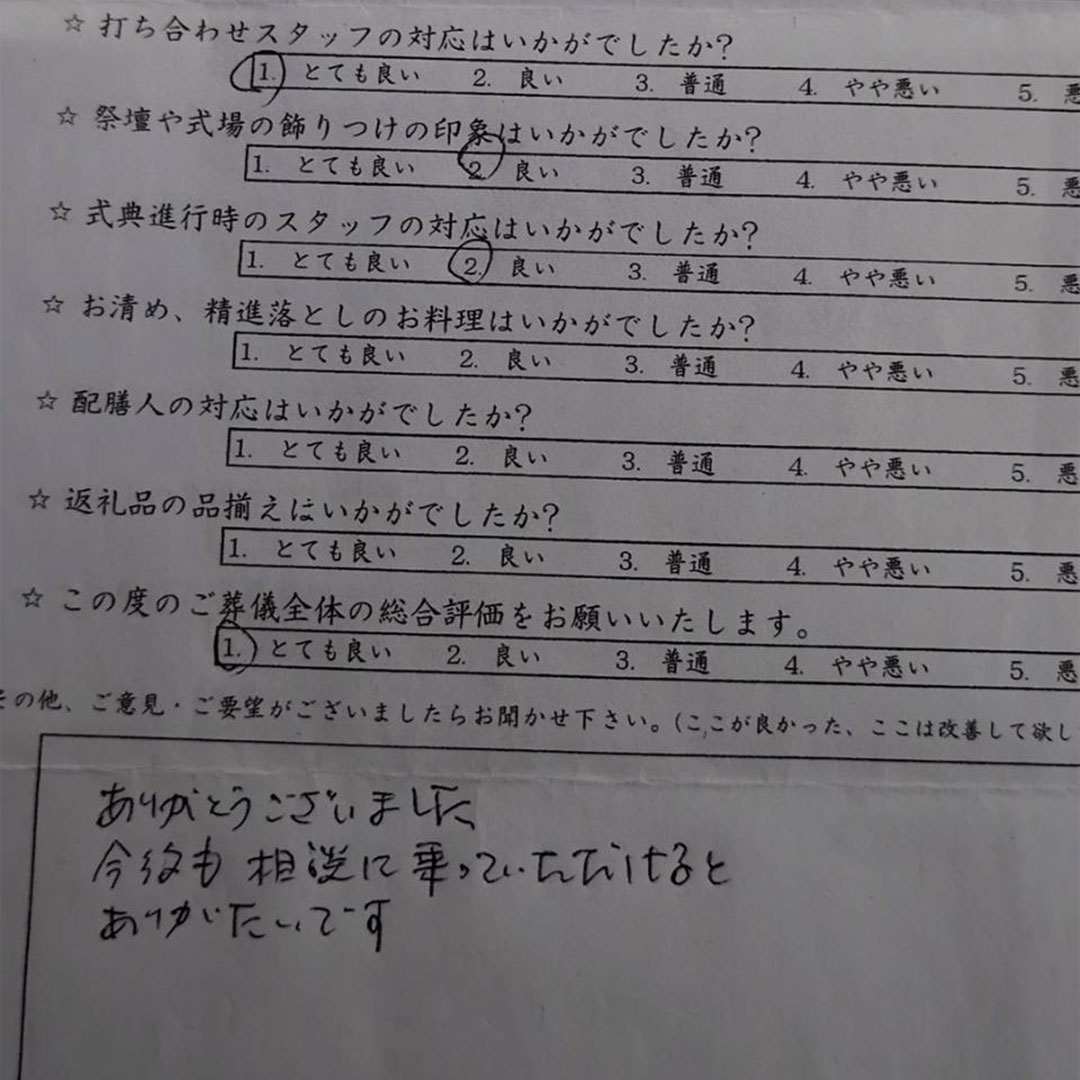 ☆ 打ち合わせスタッフの対応はいかがでしたか?
1. とても良い 2. 良い 3. 普通 4. やや悪い 5. 悪
☆ 祭壇や式場の飾りつけの印象はいかがでしたか?
1. とても良い 2. 良い 3. 普通 4. やや悪い 5. 悪
☆ 式典進行時のスタッフの対応はいかがでしたか?
1. とても良い 2. 良い 3. 普通 4. やや悪い 5. 悪
☆ お清め、精進落としのお料理はいかがでしたか?
1. とても良い 2. 良い 3. 普通 4. やや悪い 5. 悪
☆ 配膳人の対応はいかがでしたか?
1. とても良い 2. 良い 3. 普通 4. やや悪い 5. 悪
☆ 返礼品の品揃えはいかがでしたか?
1. とても良い 2. 良い 3. 普通 4. やや悪い 5. 悪
☆ この度のご葬儀全体の総合評価をお願いいたします。
1. とても良い 2. 良い 3. 普通 4. やや悪い 5. 悪
その他、ご意見・ご要望がございましたらお聞かせ下さい。(ここが良かった、ここは改善して欲し
ありがとうございました
今後も相談に乗っていただけると
ありがたいです